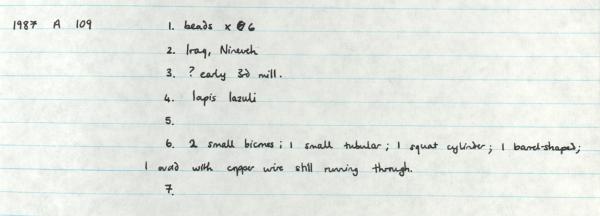 1987 A 109 1. beads x 6
2. Iraq, Nineveh
3. ? early 3rd mill.
4. lapis lazuli
5.
6. 2 small bicones; 1 small tubular; 1 squat cylinder; 1 barrel-shaped;
1 ovoid with copper wire still running through.
7.